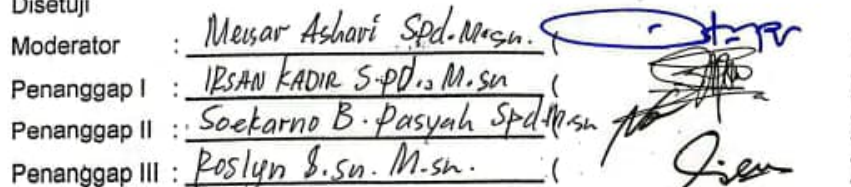 Disetuji
Moderator : Meisar Ashari Spd. M.sn. (
Penanggap I : IRSAN KADIR S.pd., M.sn (
Penanggap II : Soekarno B. Pasyah Spd. M.sn
Penanggap III : Roslyn S.sn. M.sn. (